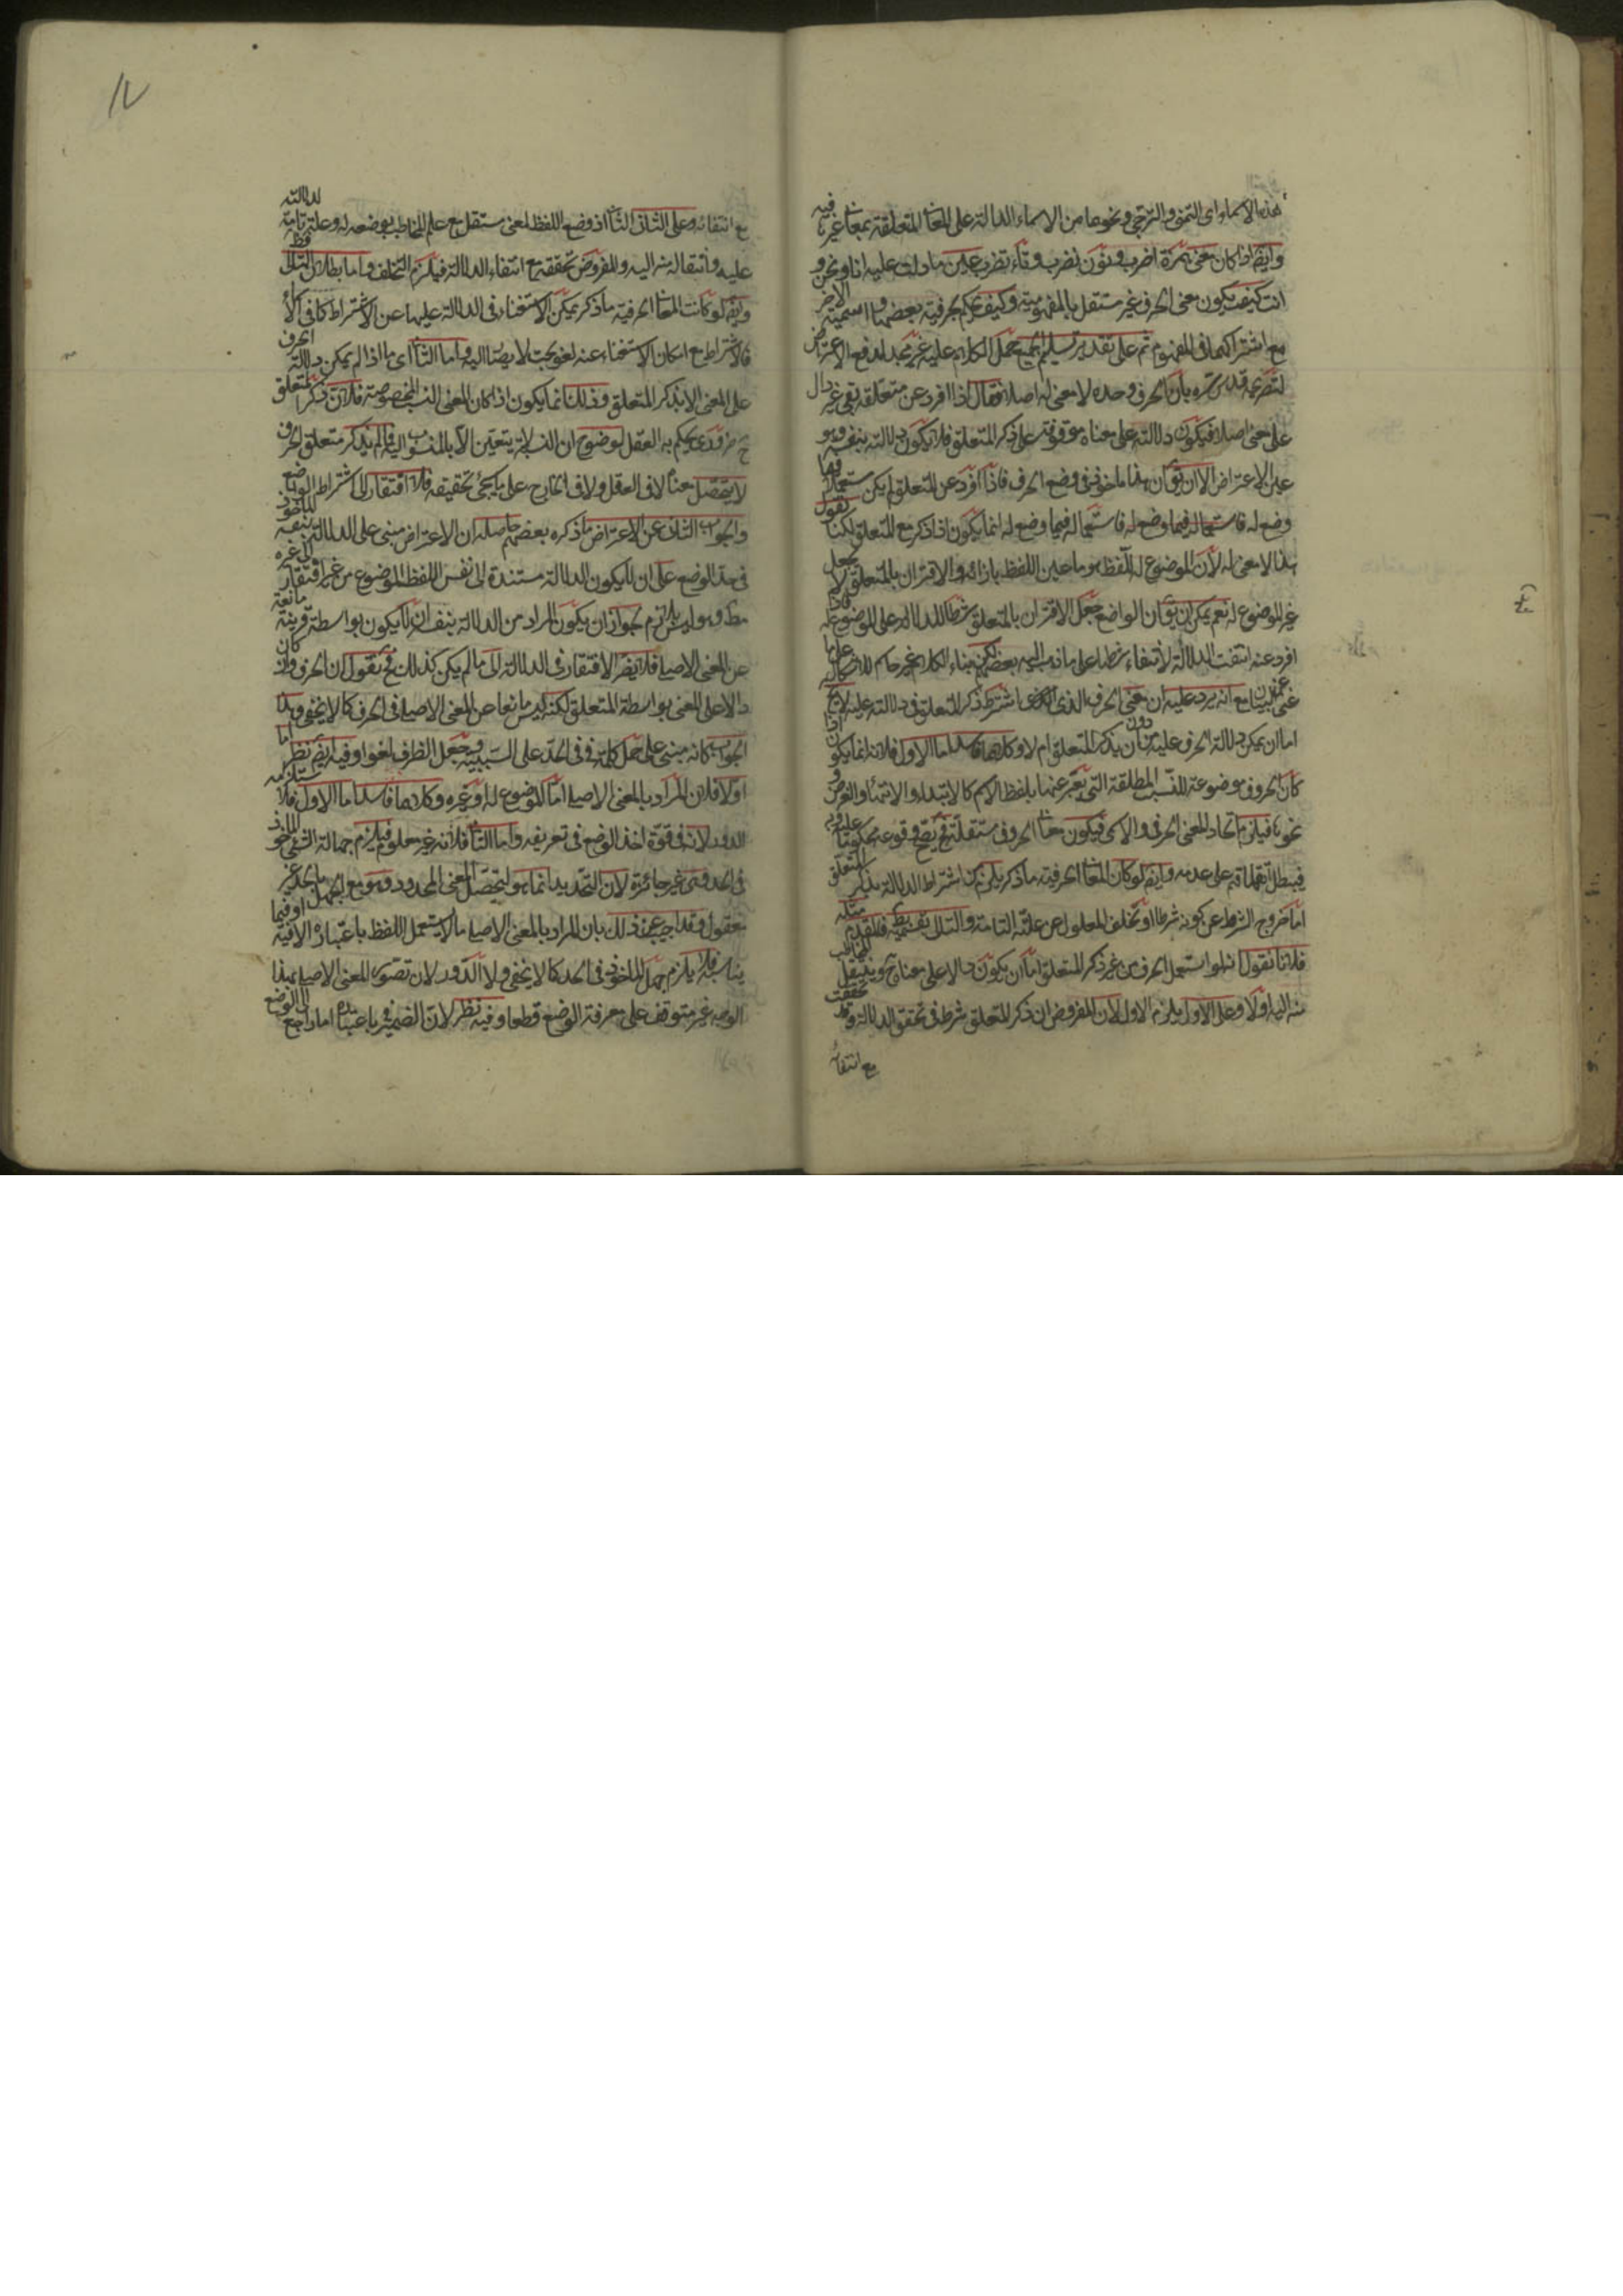 هذه الاسماء اى التمنى والترجى ونحوها من الاسماء الدالة على المعانى المتعلقة بمعانى غيرها فيه
وايضا اذا كان معنى همزة اضرب ونون نضرب وتاء تضرب عين ما دلت عليه انا ونحن و
انت كيف يكون معنى الحرف غير مستقل بالمفهومية وكيف يحكم بحرفية بعضها واسمية الاخر
مع اشتراكهما فى المفهوم ثم على تقدير تسليم الجميع حمل الكلام عليه غير مجد لدفع الاعتراض
لتصريحه قدس سره بان الحرف وحده لا معنى له اصلا فقال اذا افرد عن متعلقه بقى غير دال
على معنى اصلا فيكون دلالته على معناه موقوفة على ذكر المتعلق فلا يكون دلالته بنفسه وهو
عين الاعتراض الا ان يق ان هذا ماخوذ فى وضع الحرف فاذا افرد عن المتعلق لم يكن مستعملا فيما
وضع له فاستعماله فيما وضع له انما يكون اذا ذكر مع المتعلق لكنا نقول
هذا لا معنى له لان الموضوع له اللفظ هو ما عين اللفظ بازائه والاقتران بالمتعلق لا يجعل
غير الموضوع له نعم يمكن ان يق ان الواضع جعل الاقتران بالمتعلق شرطا للدلالة على الموضوع له فاذا
افرد عنه انتفت الدلالة لانتفاء شرطها على ما ذهب اليه بعضهم لكن بناء الكلام
غنى عن البيان مع انه يرد عليه ان معنى الحرف الذى اشترط ذكر المتعلق فى دلالته عليه لا يخ
اما ان يمكن دلالة الحرف عليه من دون ان يذكر المتعلق ام لا وكلاهما فاسد اما الاول فلانه انما يكون اذا
كان الحروف موضوعة للنسب المطلقة التى يعبر عنها بلفظ الاسم كالابتداء والانتهاء والغرض و
نحوها فيلزم اتحاد المعنى الحرفى والاسمى فيكون معانى الحروف مستقلة فح يصح وقوعه محكوما عليه وبه
فيبطل اتفاقهم على عدمه وايضا لو كان المعانى الحرفية ما ذكر يلزم من اشتراط الدلالة بذكر المتعلق
اما خروج الشرط عن كونه شرطا او تخلف المعلول عن علته التامة والتالى بقسميه بط فالمقدم مثله
فلانا نقول انه لو استعمل الحرف من غير ذكر المتعلق اما ان يكون دالا على معناه ح وينتقل المخاطب
منه اليه اولا وعلى الاول يلزم الاول لان المفروض ان ذكر المتعلق شرط فى تحقق الدلالة وقد تحققت
مع انتفائه
مع انتفائه وعلى الثانى الثانى اذ وضع اللفظ لمعنى مستقل مع علم المخاطب بوضعه له وعلة تامة لدلالته
عليه وانتقاله منه اليه والمفروض تحققه مع انتفاء الدلالة فيلزم التخلف واما بطلان التالى فظ
وايضا لو كانت المعانى الحرفية ما ذكر يمكن الاستغناء فى الدلالة عليها عن الاشتراط كما فى
فالاشتراط مع امكان الاستغناء عنه لغو بحت لا يصار اليه واما الثانى اى ما اذا لم يمكن دلالة الحرف
على المعنى الا بذكر المتعلق وذلك انما يكون اذا كان المعنى النسب المخصوصة فلان ذكر المتعلق
ح ضرورى يحكم به العقل لوضوح ان النسبة لا يتعين الا بالمنسوب اليه فما لم يذكر متعلق الحرف
لا يتحصل معناه لا فى العقل ولا فى الخارج على ما يجئ تحقيقه فلا افتقار الى اشتراط الواضع
والجواب الثانى عن الاعتراض ما ذكره بعضهم حاصله ان الاعتراض مبنى على الدلالة بنفسه الماخوذ
فى حد الوضع على ان يكون الدلالة مستندة الى نفس اللفظ الموضوع من غير افتقار الى غيره
مط وهو ليس بلازم لجواز ان يكون المراد من الدلالة بنفسه ان لا يكون بواسطة قرينة مانعة
عن المعنى الاصلى فلا يضر الافتقار فى الدلالة الى ما لم يكن كذلك فح نقول ان الحرف وان كان
دالا على المعنى بواسطة المتعلق لكنه ليس مانعا عن المعنى الاصلى فى الحرف كما لا يخفى وهذا
الجواب كانه مبنى على حمل كلمة فى فى الحد على السببية وجعل الظرف لغوا وفيه ايضا نظر اما
اولا فلان المراد بالمعنى الاصلى اما الموضوع له او غيره وكلاهما فاسد اما الاول فلاستلزامه
الدور لانه فى قوة اخذ الوضع فى تعريفه واما الثانى فلانه غير معلوم فيلزم جهالة الشئ الماخوذ
فى الحد وهى غير جائزة لان التحديد انما هو لتحصل المعنى المحدود وهو مع الجهل
نقول وقد اجيب عن ذلك بان المراد بالمعنى الاصلى ما لا يستعمل اللفظ باعتباره الا فيه او فيما
يناسبه فلا يلزم جهل الماخوذ فى الحد كما لا يخفى ولا الدور لان تصور المعنى الاصلى بهذا
الوجه غير متوقف على معرفة الوضع قطعا وفيه نظر لان الضمير فى باعتباره اما راجع الى الوضع